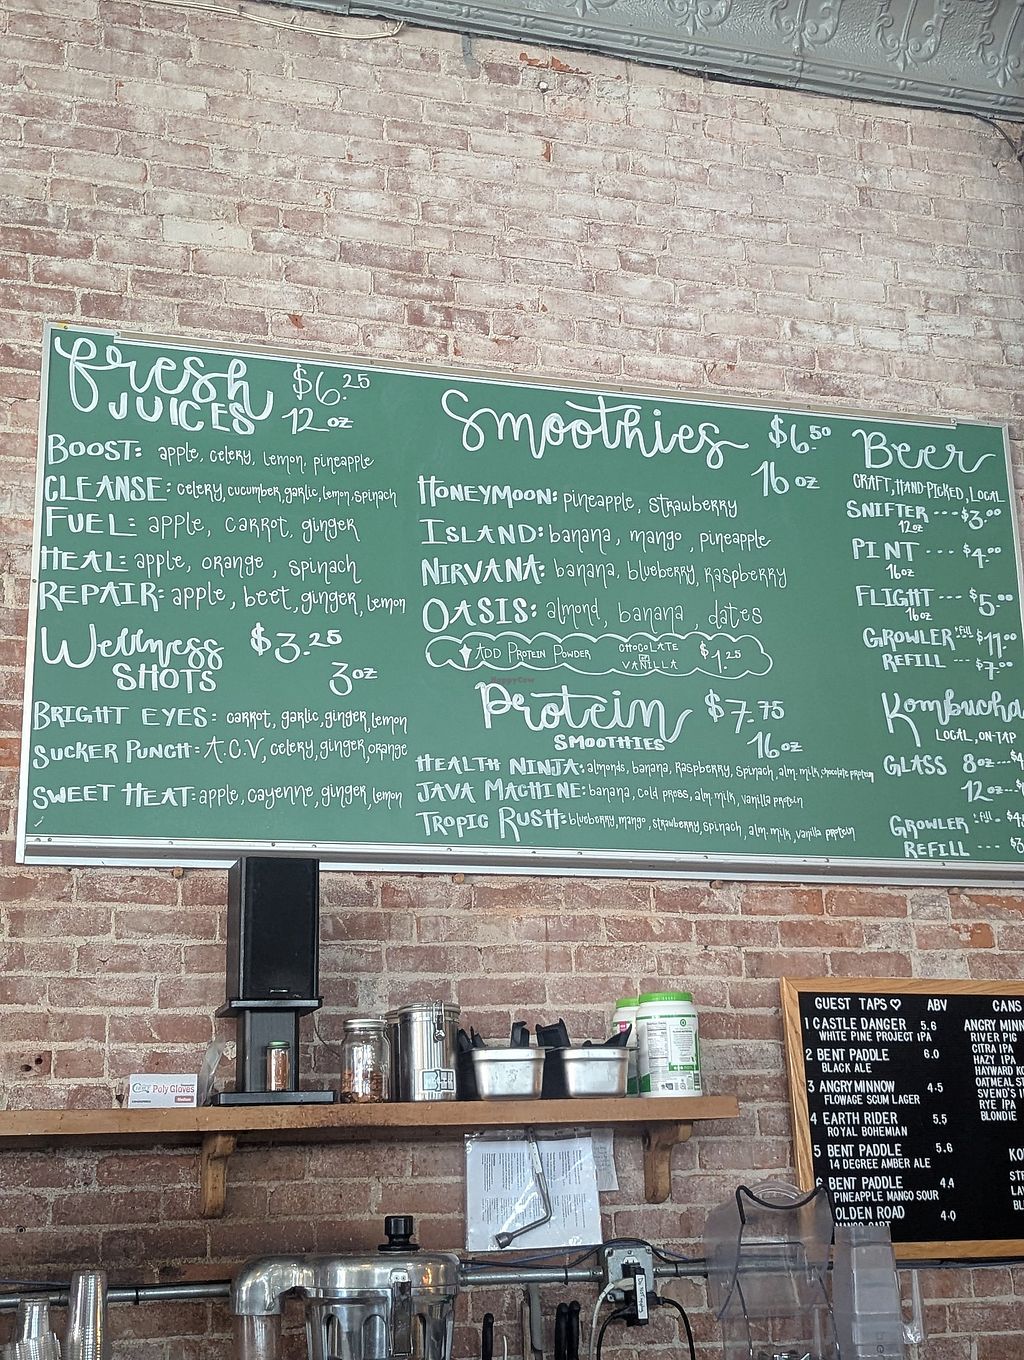 fresh
JUICES
$6.25
12 oz
BOOST: apple, celery, lemon, pineapple
CLEANSE: celery, cucumber, garlic, lemon, spinach
FUEL: apple, carrot, ginger
HEAL: apple, orange, spinach
REPAIR: apple, beet, ginger, lemon
Wellness
SHOTS
$3.25
3oz
BRIGHT EYES: carrot, garlic, ginger, lemon
SUCKER PUNCH: A.C.V, celery, ginger, orange
SWEET HEAT: apple, cayenne, ginger, lemon
Smoothies
$6.50
16 oz
HONEYMOON: pineapple, strawberry
ISLAND: banana, mango, pineapple
NIRVANA: banana, blueberry, raspberry
OASIS: almond, banana, dates
ADD PROTEIN POWDER CHOCOLATE OR VANILLA $1.25
HappyCow
Protein
SMOOTHIES
$7.75
16oz
HEALTH NINJA: almonds, banana, raspberry, spinach, alm. milk, chocolate protein
JAVA MACHINE: banana, cold press, alm milk, vanilla protein
TROPIC RUSH: blueberry, mango, strawberry, spinach, alm. milk, vanilla protein
Beer
CRAFT, HAND-PICKED, LOCAL
SNIFTER --- $3.00
12oz
PINT --- $4.00
16oz
FLIGHT --- $5.00
16oz
GROWLER + Fill $11.00
REFILL --- $7.00
Kombucha
LOCAL, ON-TAP
GLASS 8oz --- $4
12oz --- $
GROWLER + Fill - $4
REFILL --- $3
Poly Gloves
GUEST TAPS ♡ ABV
1 CASTLE DANGER 5.6
WHITE PINE PROJECT IPA
2 BENT PADDLE 6.0
BLACK ALE
3 ANGRY MINNOW 4.5
FLOWAGE SCUM LAGER
4 EARTH RIDER 5.5
ROYAL BOHEMIAN
5 BENT PADDLE 5.6
14 DEGREE AMBER ALE
6 BENT PADDLE 4.4
PINEAPPLE MANGO SOUR
OLDEN ROAD 4.0
MANGO CART
CANS
ANGRY MINN
RIVER PIG
CITRA IPA
HAZY IPA
HAYWARD
OATMEAL ST
SVEND'S
RYE IPA
BLONDIE
KO
ST
LA
BL